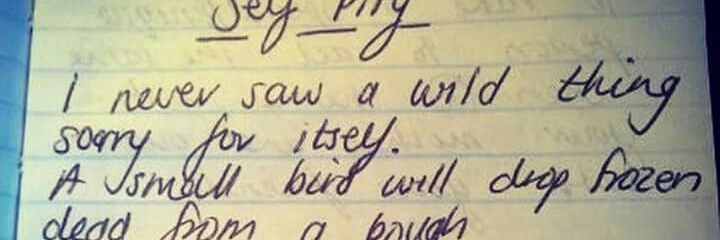 Self Pity
I never saw a wild thing
sorry for itself.
A small bird will drop frozen
dead from a bough